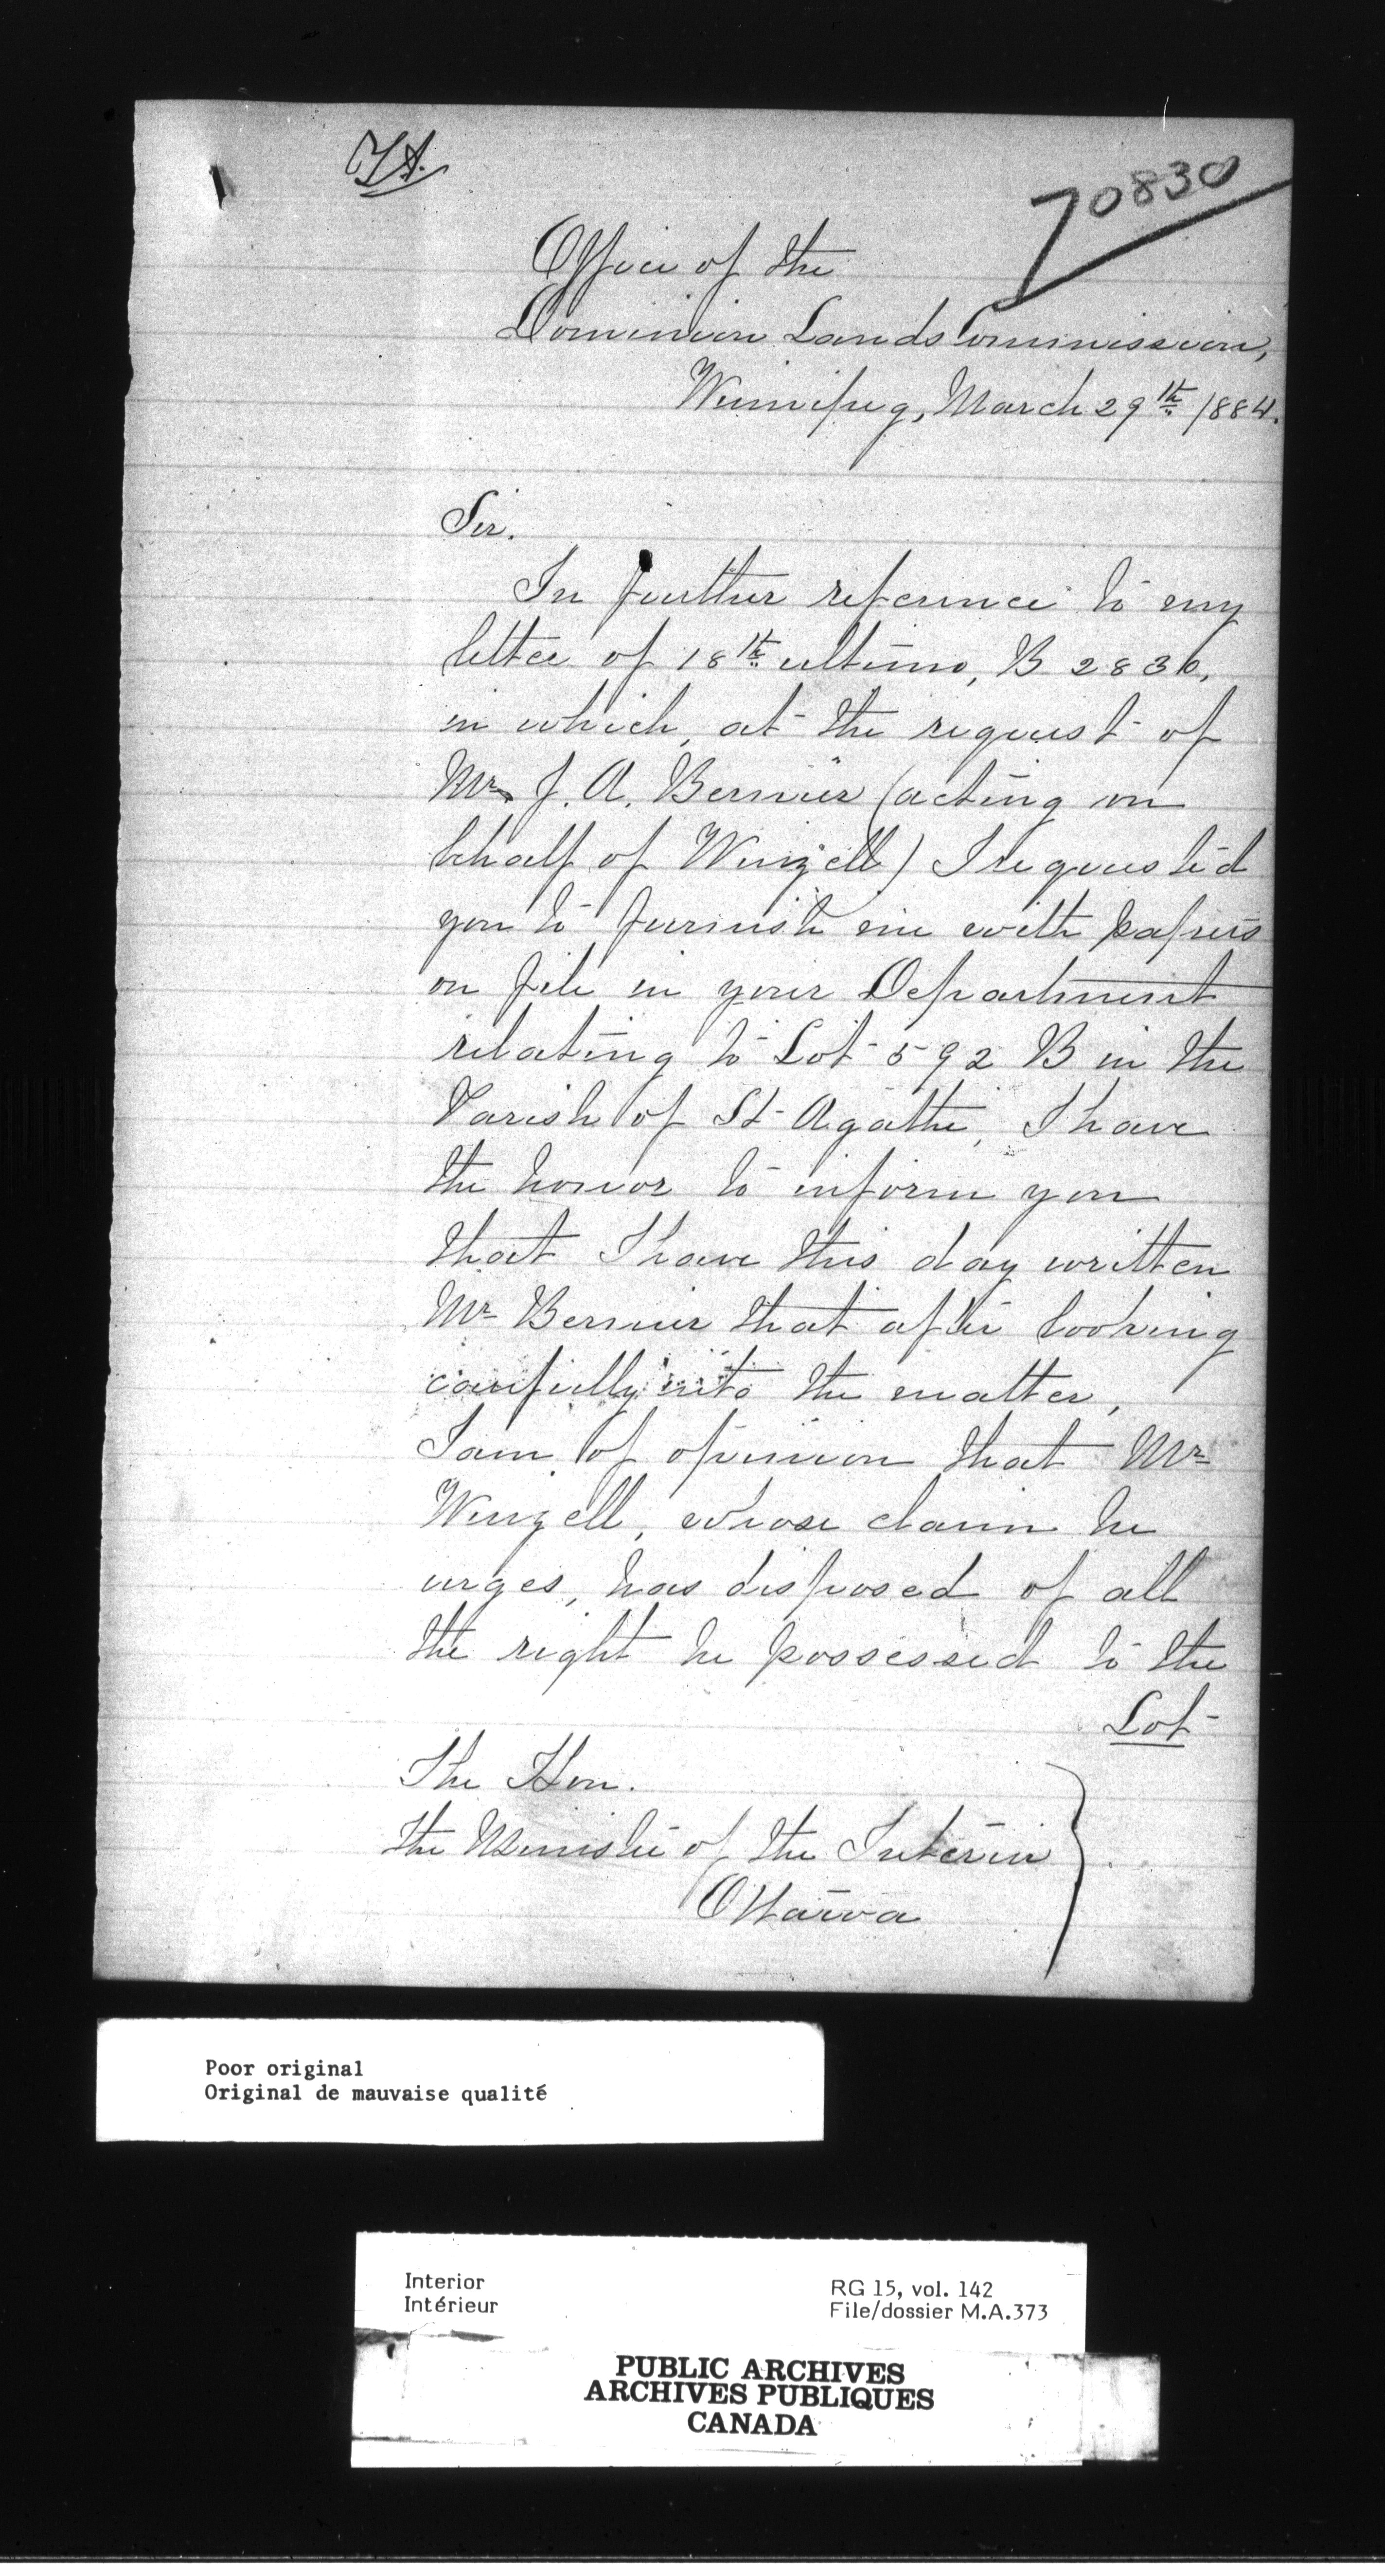 70830
Office of the
Dominion Lands Commission,
Winnipeg, March 29th 1884.
Sir.
In further reference to my
letter of 18th ultimo, B 2830,
in which, at the request of
Mr J. A. Bernier (acting on
behalf of Wenzell) I requested
you to furnish me with papers
on file in your Department
relating to Lot 592 B in the
Parish of St Agathe, I have
the honor to inform you
that I have this day written
Mr Bernier that after looking
carefully into the matter,
I am of opinion that Mr
Wenzell, whose claim he
urges, has disposed of all
the right he possessed to the
Lot
The Hon.
the Minister of the Interior
Ottawa
Poor original
Original de mauvaise qualité
Interior
Intérieur
RG 15, vol. 142
File/dossier M.A.373
PUBLIC ARCHIVES
ARCHIVES PUBLIQUES
CANADA